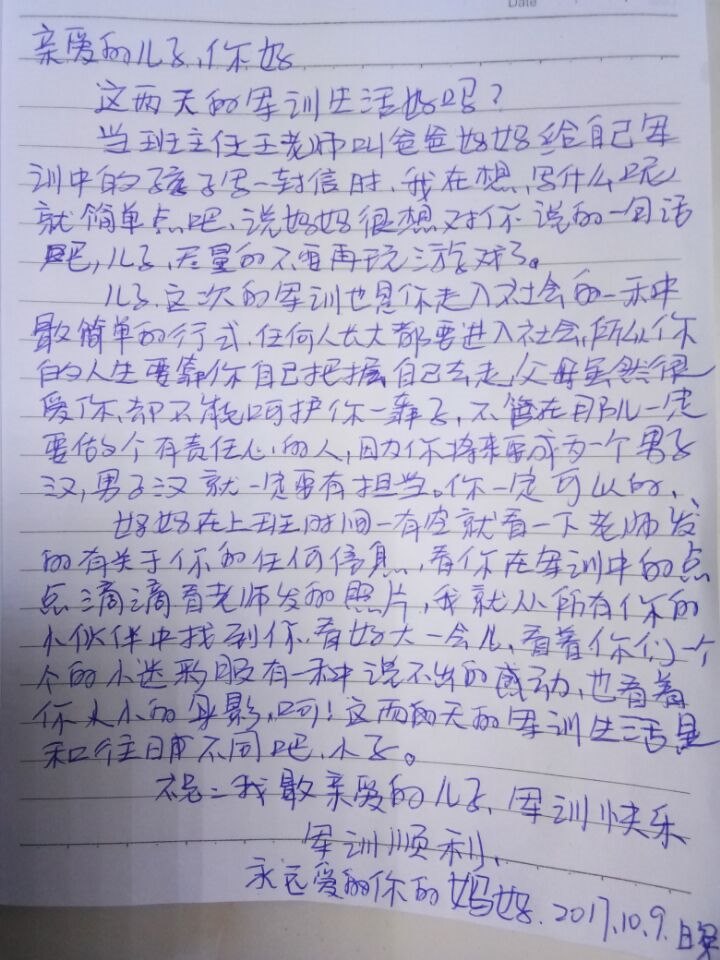 Date
亲爱的儿子,你好
这两天的军训生活好吗?
当班主任王老师叫爸爸妈妈给自己军
训中的孩子写一封信时,我在想,写什么呢
就简单点吧,说妈妈很想对你说的一句话
吧,儿子,尽量的不要再玩游戏了。
儿子,这次的军训也是你走入社会的一种
最简单的行式,任何人长大都要进入社会,所以你
的人生要靠你自己把握自己去走,父母虽然很
爱你,却不能呵护你一辈子,不管在那儿一定
要做个有责任心的人,因为你将来要成为一个男子
汉,男子汉就一定要有担当。你一定可以的、
妈妈在上班时间一有空就看一下老师发
的有关于你的任何信息,看你在军训中的点
点滴滴看老师发的照片,我就从所有你的
小伙伴中找到你,看好大一会儿,看着你们一个
个的小迷彩服有一种说不出的感动,也看着
你大小的身影,呵!这两天的军训生活是
和往日不同吧,小子。
祝:我最亲爱的儿子,军训快乐
军训顺利、
永远爱你的妈妈.2017.10.9.晚